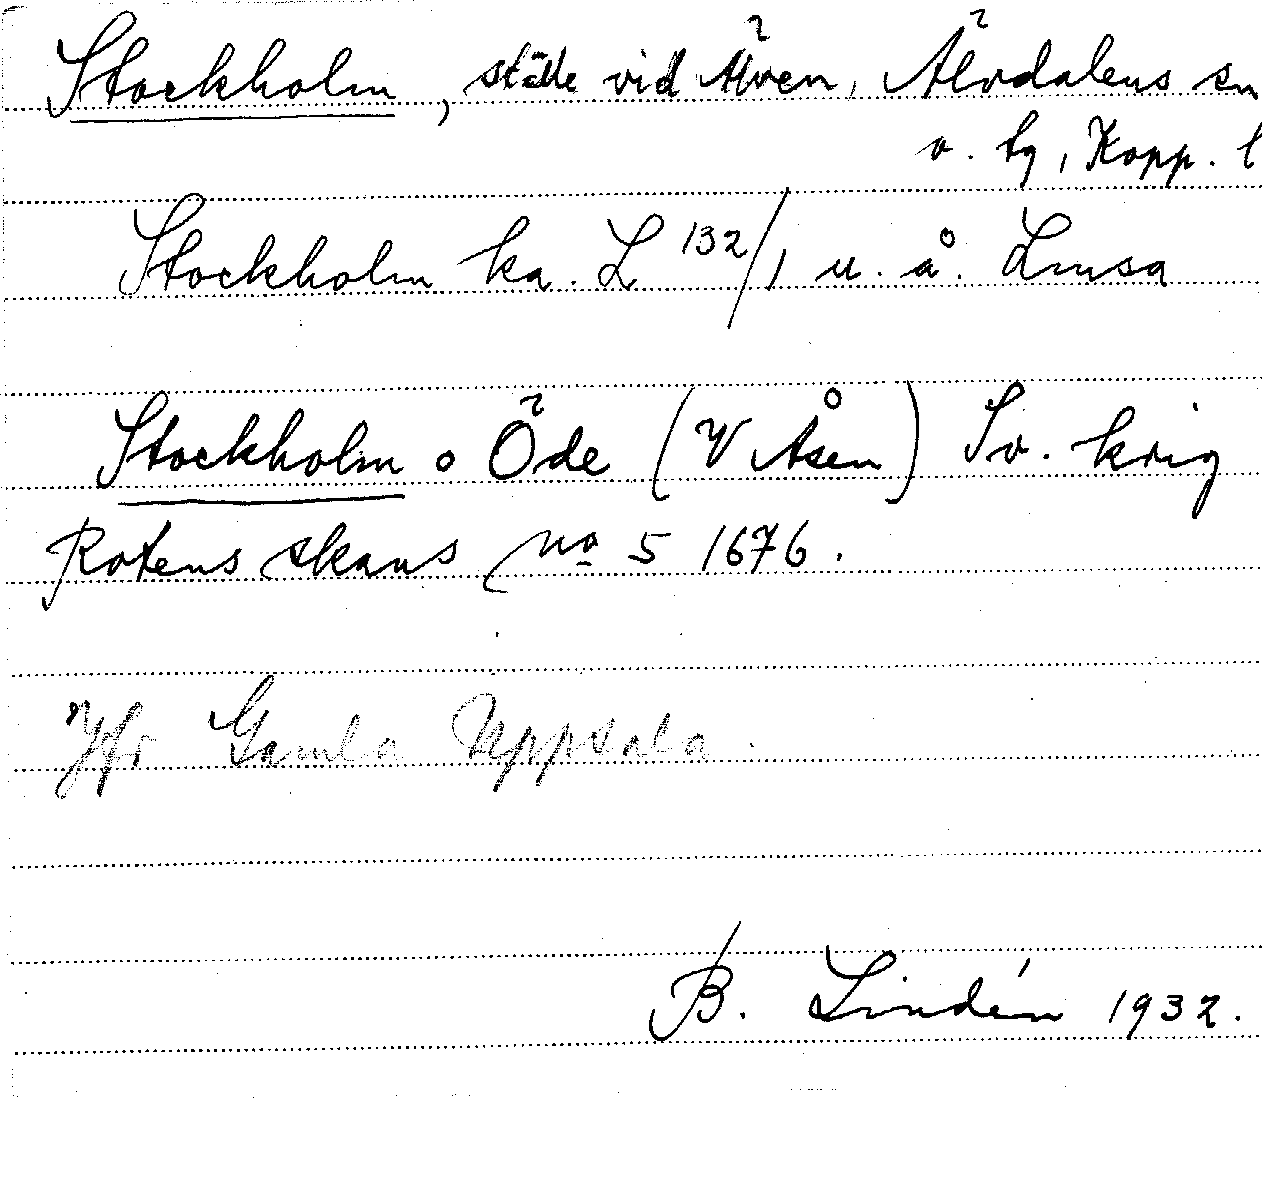 Stockholm, ställe vid Älven, Älvdalens sn
o. tg, Kopp. l
Stockholm ka. L 132/1 u. å. Lmsa
Stockholm o Öde (V Åsen) Sv. krig
Rotens skans No 5 1676.
Jfr Gamla Uppsala.
B. Lindén 1932.